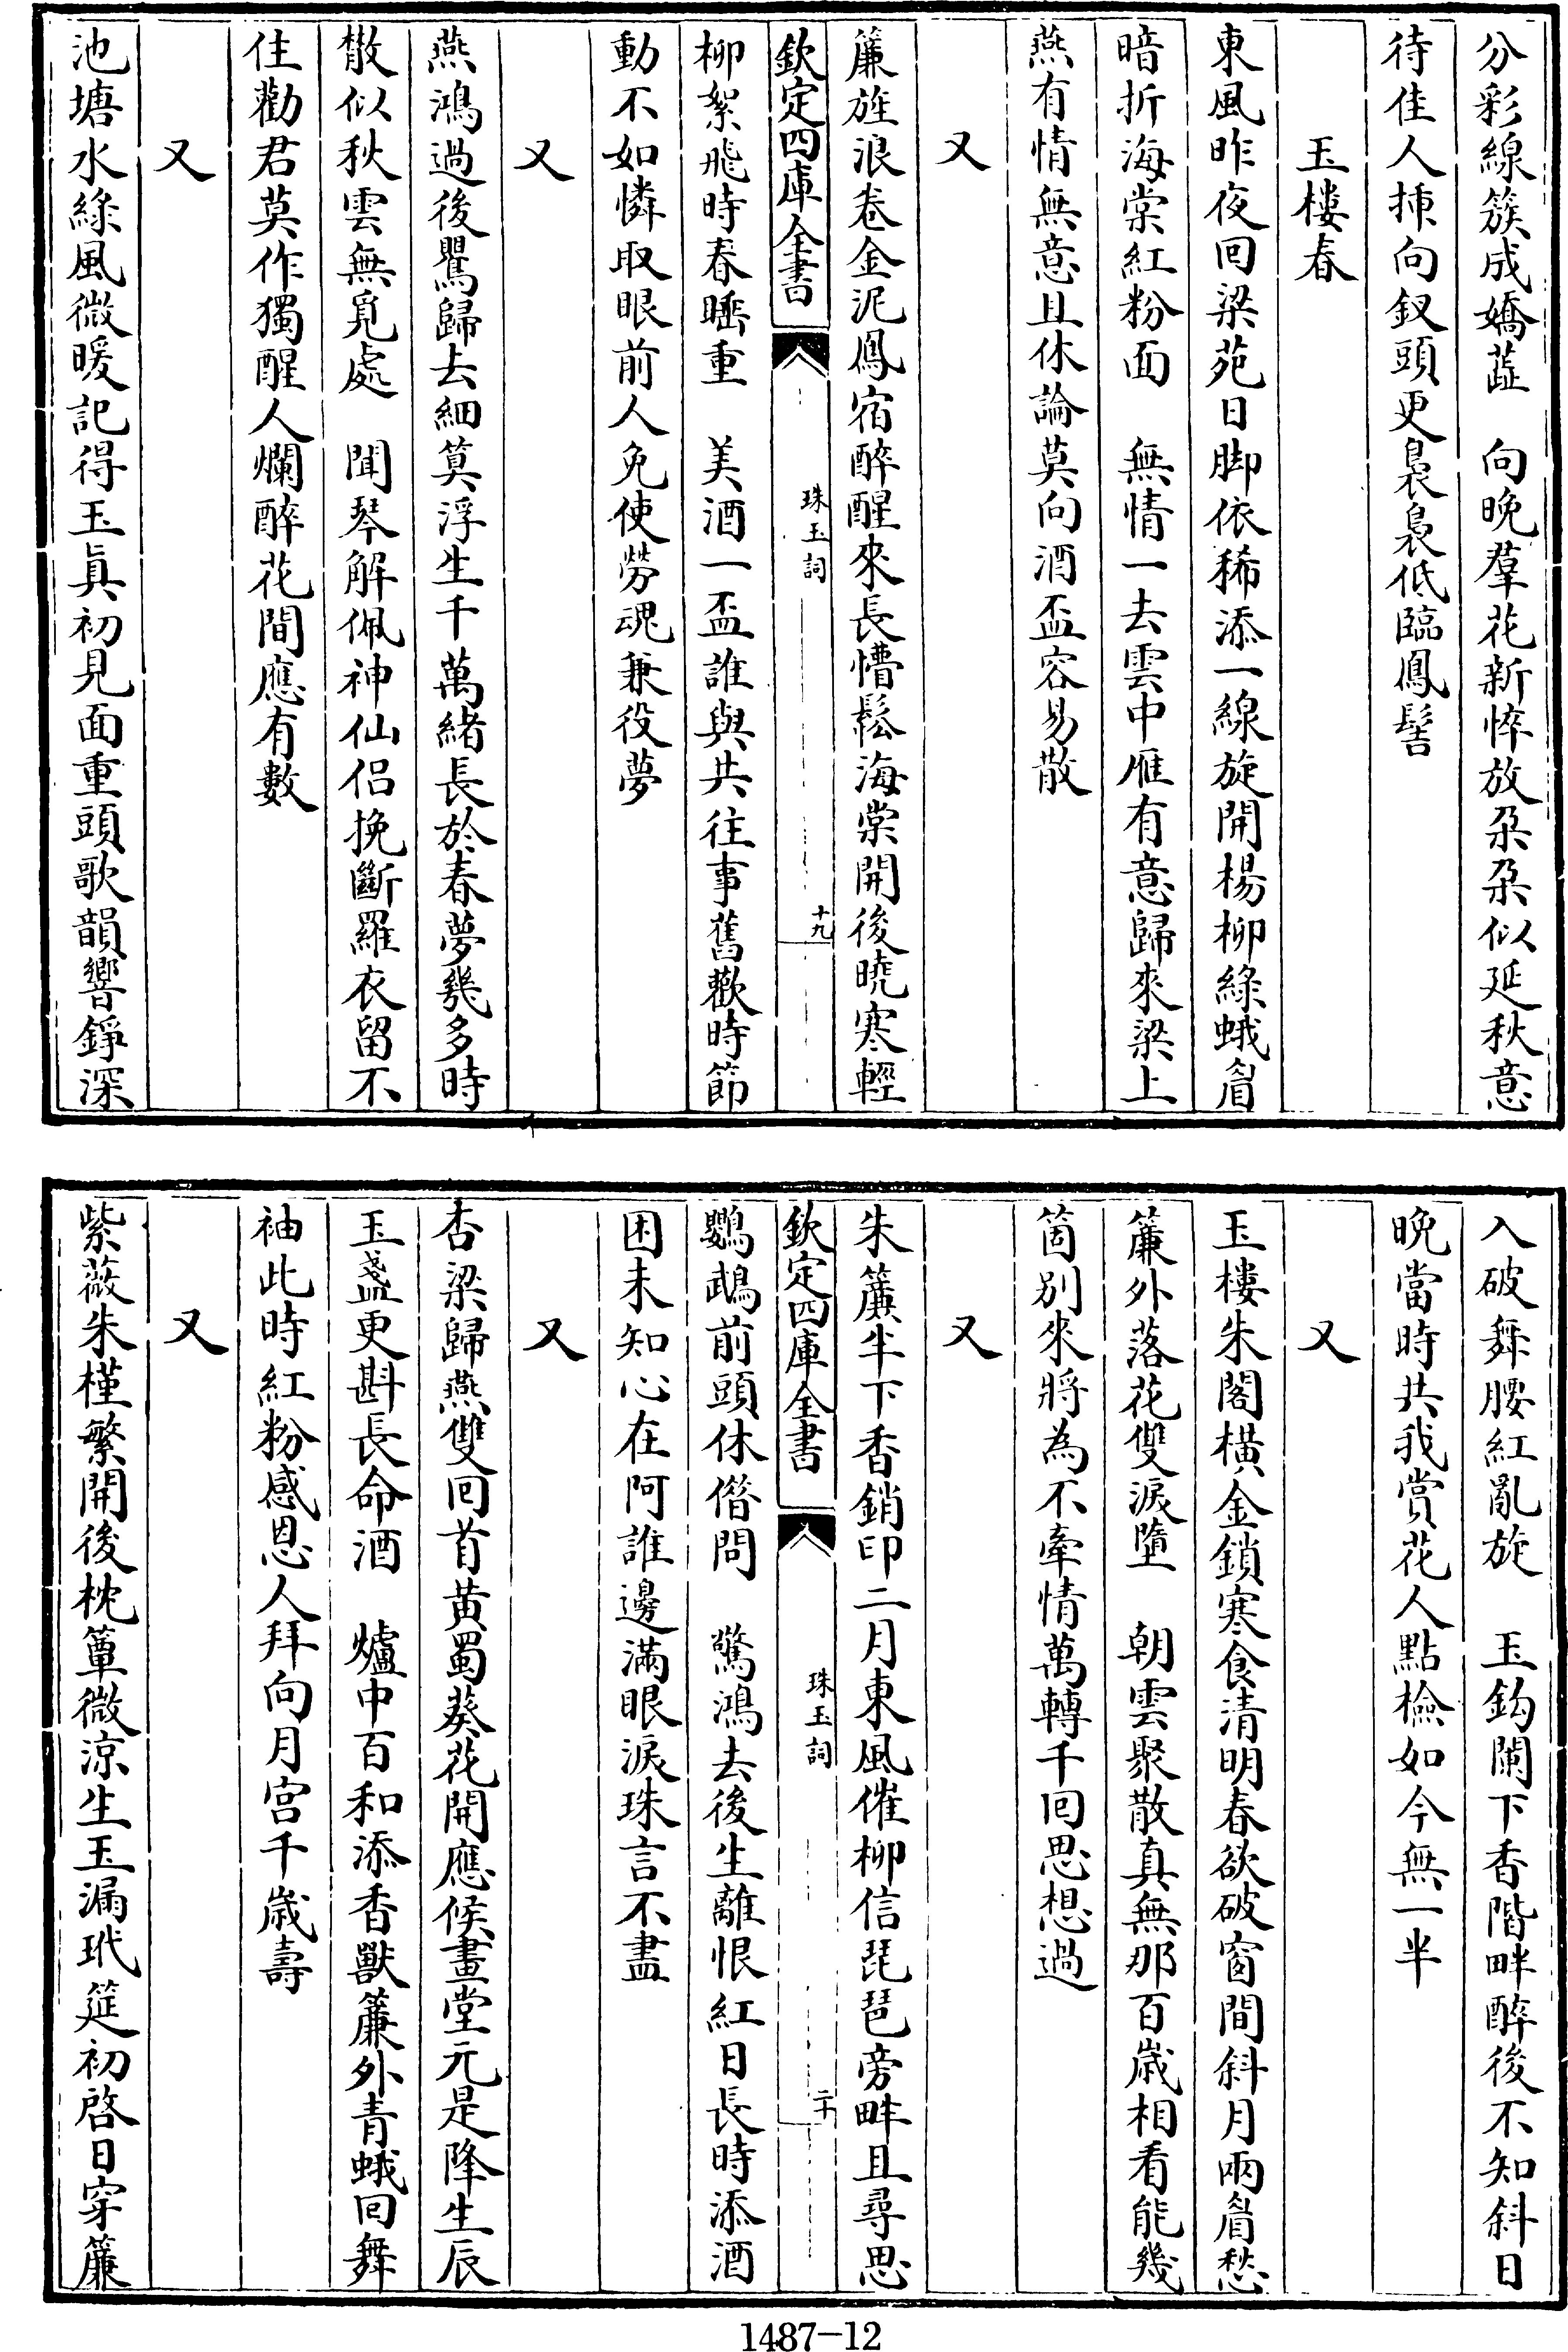 分彩線簇成嬌蘂　向晚羣花新悴放朶朶似延秋意
待佳人揷向釵頭更裊裊低臨鳳髻
玉樓春
東風昨夜回梁苑日脚依稀添一線旋開楊柳綠蛾眉
暗折海棠紅粉面　無情一去雲中雁有意歸來梁上
燕有情無意且休論莫向酒盃容易散
又
簾旌浪卷金泥鳳宿醉醒來長懵鬆海棠開後曉寒輕
欽定四庫全書
珠玉詞
十九
柳絮飛時春睡重　美酒一盃誰與共往事舊歡時節
動不如憐取眼前人免使勞魂兼役夢
又
燕鴻過後鶯歸去細筭浮生千萬緒長於春夢幾多時
散似秋雲無覓處　聞琴解佩神仙侣挽斷羅衣留不
住勸君莫作獨醒人爛醉花間應有數
又
池塘水綠風微暖記得玉眞初見面重頭歌韻響錚深
入破舞腰紅亂旋　玉鈎闌下香階畔醉後不知斜日
晚當時共我賞花人點檢如今無一半
又
玉樓朱閣橫金鎖寒食清明春欲破窗間斜月兩眉愁
簾外落花雙淚墮　朝雲聚散真無那百歲相看能幾
箇别來將為不牽情萬轉千回思想過
又
朱簾半下香銷印二月東風催柳信琵琶旁畔且尋思
欽定四庫全書
珠玉詞
二十
鸚鵡前頭休借問　驚鴻去後生離恨紅日長時添酒
困未知心在阿誰邊滿眼淚珠言不盡
又
杏梁歸燕雙回首黄蜀葵花開應候畫堂元是降生辰
玉盞更斟長命酒　爐中百和添香獸簾外青蛾回舞
袖此時紅粉感恩人拜向月宫千歲壽
又
紫薇朱槿繁開後枕簟微涼生玉漏玳筵初啓日穿簾
1487-12